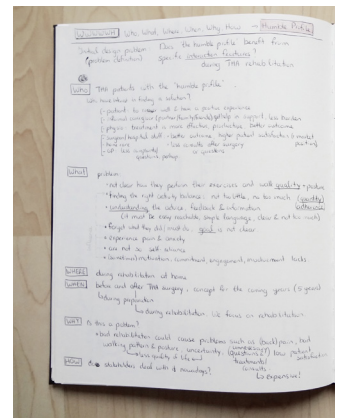 WWWWWH Who, What, Where, When, Why, How — Humble Profile
Initial design problem Does the humble profile benefit from
(problem definition) specific interaction features?
during THA rehabilitation
Who THA patients with the "humble profile"
Who more interest in finding a solution?
- patient: to & have a positive experience
- informal caregiver (partner/family/friends) get help in support, less burden
- physio: treatment is more effective, productive better outcome
- surgeon/hospital staff - better outcome, higher patient satisfaction
- home care - less after surgery
- GP
questions perhaps
What problem:
• not clear how they perform their exercises and walk quality + posture
• finding the right activity balance: not too little, no too much (quantity)
• understanding the advice, feedback & information
(it must be easy reachable, simple language, clear & not too much)
• forget what they did/must do, goal is not clear
• experience pain & anxiety
• are not so self-reliance
• (sometimes) motivation, commitment, engagement, lacks
WHERE during rehabilitation, at home
WHEN before and after THA surgery, concept for the coming years (5 years)
during preparation
during rehabilitation, we focus on rehabilitation
WHY is this a problem?
• bad rehabilitation could cause problems such as (back)pain, bad
walking pattern & posture, uncertainty, (questions &?) low patient
less quality of life treatments/ satisfaction
HOW do stakeholders deal with it nowadays? consults
expensive!